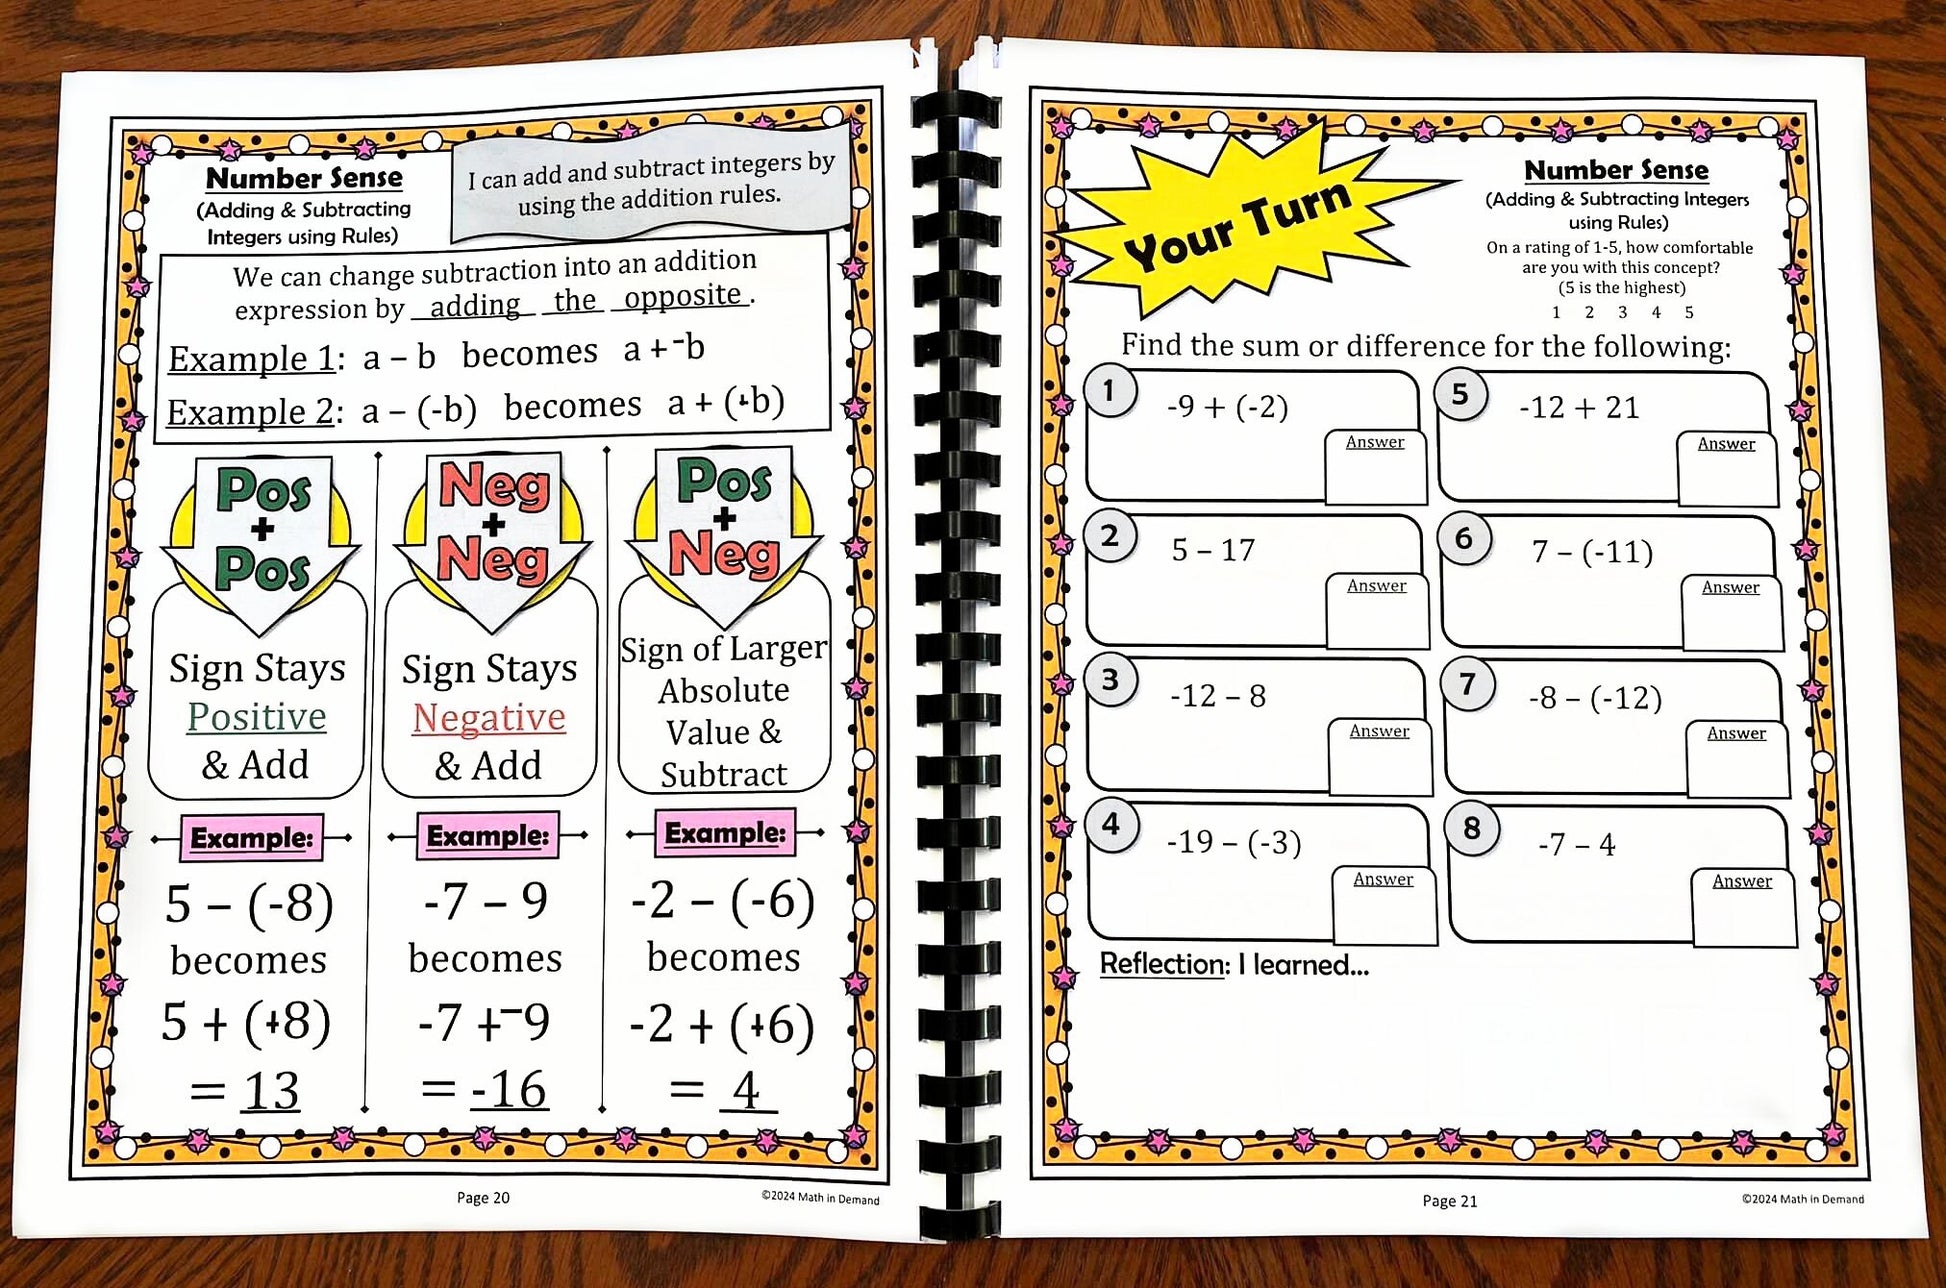 Number Sense
(Adding & Subtracting
Integers using Rules)
I can add and subtract integers by
using the addition rules.
We can change subtraction into an addition
expression by adding the opposite.
Example 1: a – b becomes a + ⁻b
Example 2: a – (-b) becomes a + (+b)
Pos
+
Pos
Sign Stays
Positive
& Add
Example:
5 – (-8)
becomes
5 + (+8)
= 13
Neg
+
Neg
Sign Stays
Negative
& Add
Example:
-7 – 9
becomes
-7 + ⁻9
= -16
Pos
+
Neg
Sign of Larger
Absolute
Value &
Subtract
Example:
-2 – (-6)
becomes
-2 + (+6)
= 4
Page 20
©2024 Math in Demand
Your Turn
Number Sense
(Adding & Subtracting Integers
using Rules)
On a rating of 1-5, how comfortable
are you with this concept?
(5 is the highest)
1 2 3 4 5
Find the sum or difference for the following:
1
-9 + (-2)
Answer
2
5 – 17
Answer
3
-12 – 8
Answer
4
-19 – (-3)
Answer
5
-12 + 21
Answer
6
7 – (-11)
Answer
7
-8 – (-12)
Answer
8
-7 – 4
Answer
Reflection: I learned...
Page 21
©2024 Math in Demand